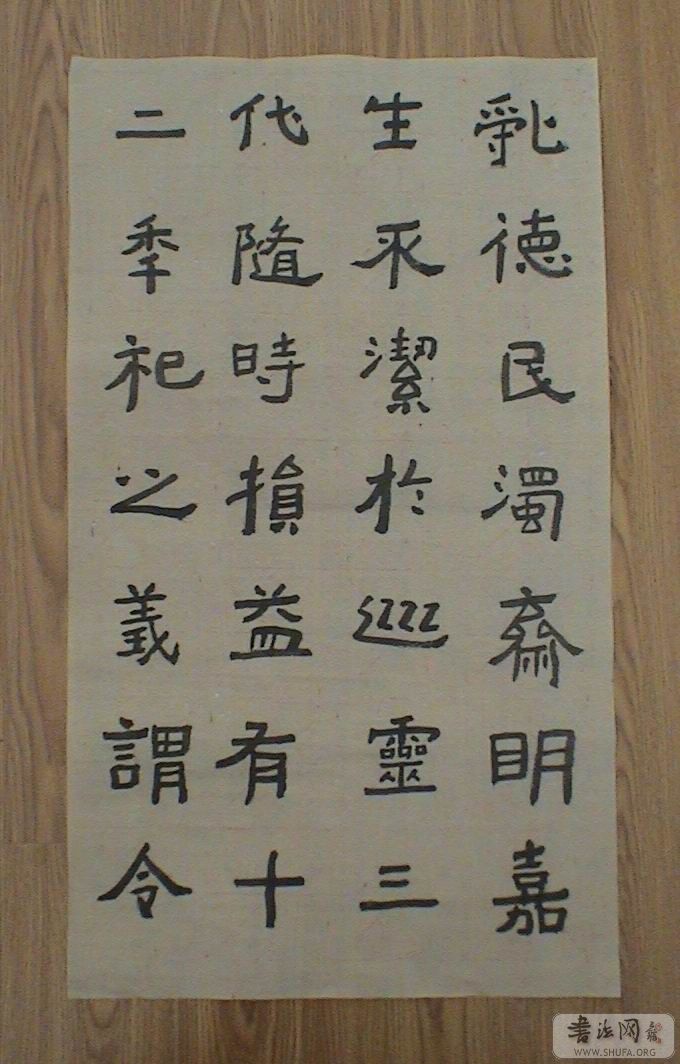 亂德民濁齋明嘉
生永潔於巡靈三
代隨時損益有十
二季祀之義謂令
書法网
WWW.SHUFA.ORG